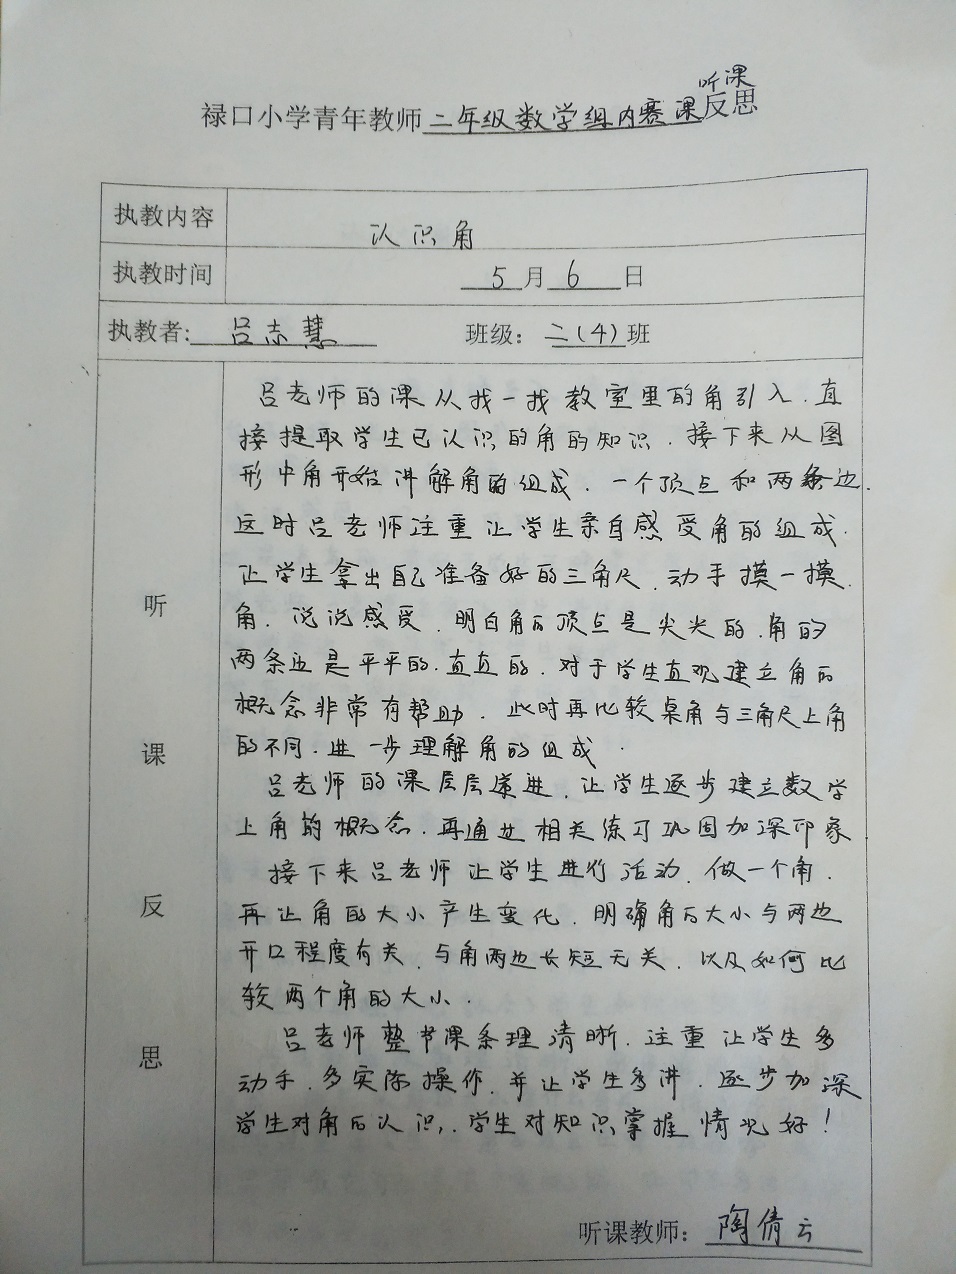 听课
禄口小学青年教师二年级数学组内赛课反思
执教内容 认识角
执教时间 5月6日
执教者: 吕志慧 班级: 二(4)班
吕老师的课从找一找教室里的角引入.直
接提取学生已认识的角的知识.接下来从图
形中角开始讲解角的组成.一个顶点和两条边.
这时吕老师注重让学生亲自感受角的组成.
让学生拿出自己准备好的三角尺.动手摸一摸.
角.说说感受.明白角的顶点是尖尖的.角的
两条边是平平的.直直的.对于学生直观建立角的
概念非常有帮助.此时再比较桌角与三角尺上角
的不同.进一步理解角的组成.
吕老师的课层层递进.让学生逐步建立数学
上角的概念.再通过相关练习巩固加深印象
接下来吕老师让学生进行活动.做一个角.
再让角的大小产生变化.明确角的大小与两边
开口程度有关.与角两边长短无关.以及如何比
较两个角的大小.
吕老师整节课条理清晰.注重让学生多
动手.多实际操作.并让学生多讲.逐步加深
学生对角的认识,.学生对知识掌握情况好!
听
课
反
思
听课教师: 陶倩云